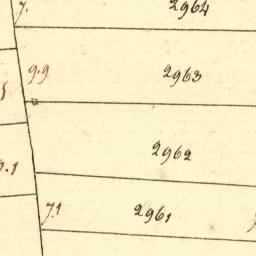 7.
2964
9.9
2963
2962
7.1
2961